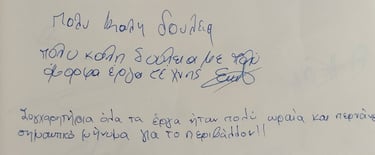 Πολυ καλη δουλεια
πολυ καλη δουλεια με πολυ
όμορφα έργα τέχνης
Συγχαρητήρια όλα τα έργα ήταν πολύ ωραία και περνάνε
σημαντικό μήνυμα για το περιβάλλον!!